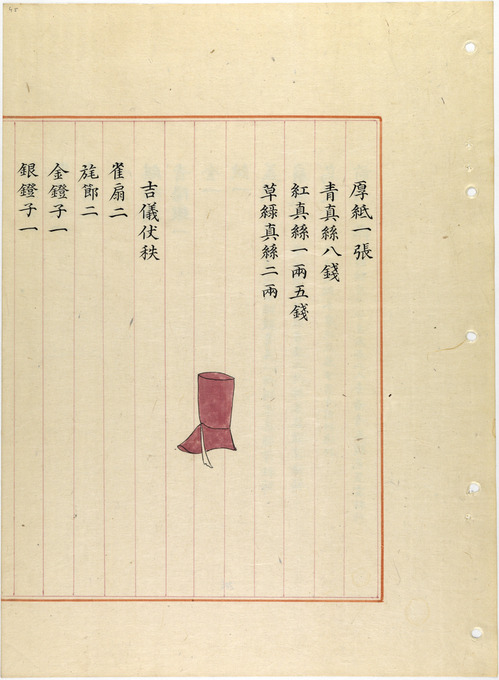 厚紙一張
青真絲八錢
紅真絲一兩五錢
草綠真絲二兩
吉儀伏秩
雀扇二
旄節二
金鐙子一
銀鐙子一